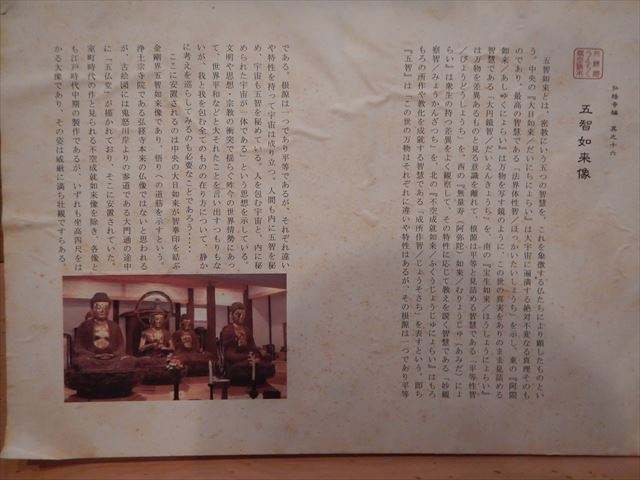 弘経寺編　其之十六
五智如来像
五智如来とは、密教にいう五つの智慧を、これを象徴する仏たちにより顕したものとい
う。中央の『大日如来／だいにちにょらい』は大宇宙に遍満する絶対不変なる真理そのも
のであり、最高の智慧である「法界体性智／ほっかいたいしょうち」を示し、東の『阿閦
如来／あしゅくにょらい』は万物を写す鏡のように、この世の真実をありのまま見詰める
智慧である「大円鏡智／だいえんきょうち」を、南の『宝生如来／ほうしょうにょらい』
は万物を差異あるものと見る意識を離れて、根源は平等と見詰める智慧である「平等性智
／びょうどうしょうち」を、西の『無量寿（阿弥陀）如来／むりょうじゅ（あみだ）にょ
らい』は衆生の持つ差異をよく観察して、その特性に応じて教えを説く智慧である「妙観
察智／みょうかんざっち」を、北の『不空成就如来／ふくうじょうじゅにょらい』はもろ
もろの所作を教化を成就する智慧である「成所作智／じょうそさち」を表すという。即ち
『五智』は「この世の万物はそれぞれに違いや特性はあるが、その根源は一つであり平等
である。根源は一つであり平等であるが、それぞれ違い
や特性を持って宇宙は成り立つ。人間も内に五智を秘
め、宇宙も五智を秘めている。人を包む宇宙と、内に秘
められた宇宙が一体である」という思想を示している。
文明や思想・宗教の衝突で揺らぐ昨今の世界情勢にあっ
て、世界平和などと大それたことを言い出すつもりもな
いが、我と我を包む全てのものの在り方について、静か
に考えを巡らしてみるのも必要なことであろう・・・・
ここに安置されるのは中央の大日如来が智拳印を結ぶ
金剛界五智如来像であり、悟りへの道筋を示すという。
浄土宗寺院である弘経寺本来の仏像ではないと思われる
が、古絵図には鬼怒川岸よりの参道である大門通の途中
に「五仏堂」が描かれており、そこに安置されていた。
室町時代の作と見られる不空成就如来像を除き、各像と
も江戸時代中期の製作であるが、いずれも坐高四尺をは
かる大像であり、その姿は威厳に満ち壮観ですらある。